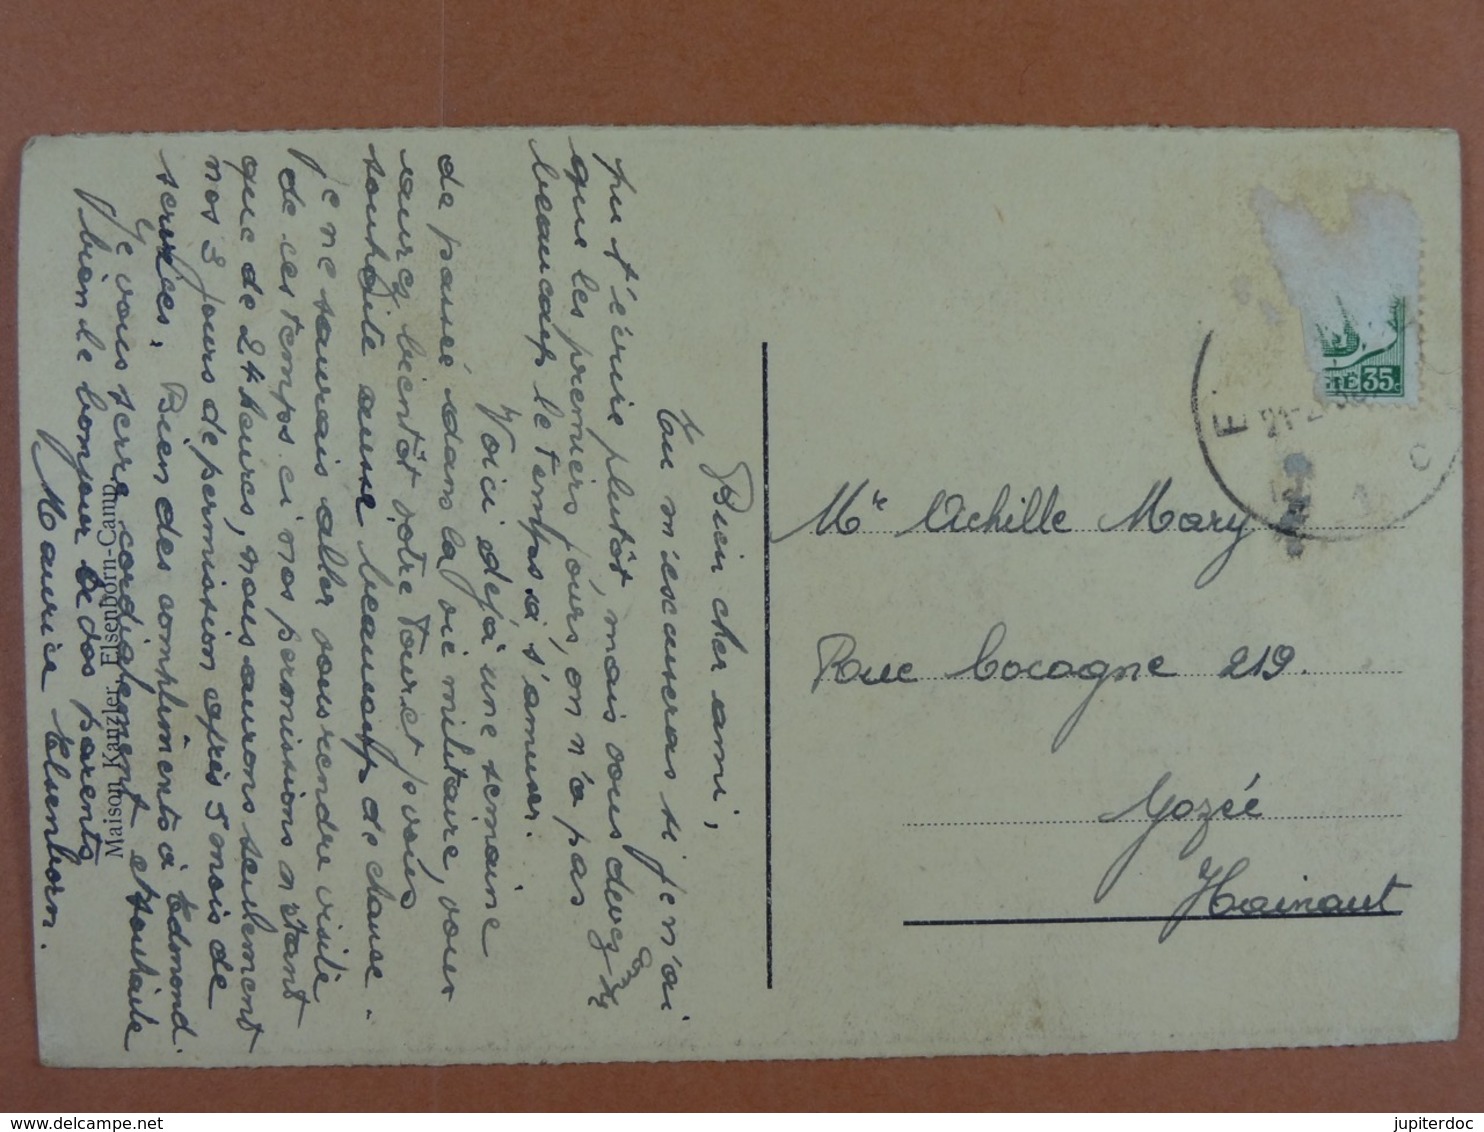 Bien cher ami,
Tu m'escuseras si je n'ai
pu t'écrire plutôt, mais vous devez
que les premiers jours, on n'a pas
beaucoup le temps à s'amuser.
Voici déjà une semaine
de passée dans la vie militaire, vous
aurez bientôt votre tour et je vous
souhaite aussi beaucoup de chance.
Je ne saurais aller vous rendre visite
de ces temps ci nos permissions n'étant
que de 24 heures, nous aurons seulement
nos 8 jours de permission après 5 mois de
services. Bien des compliments à Edmond.
Je vous serre cordialement et souhaite
bien le bonjour à dos parents
Maurice Elsenborn.
Maison Kanzler, Elsenborn-Camp
Mr Achille Mary
Rue Cocagne 219.
Gozée
Hainaut
35c
E
21-2
1
C
jupiterdoc